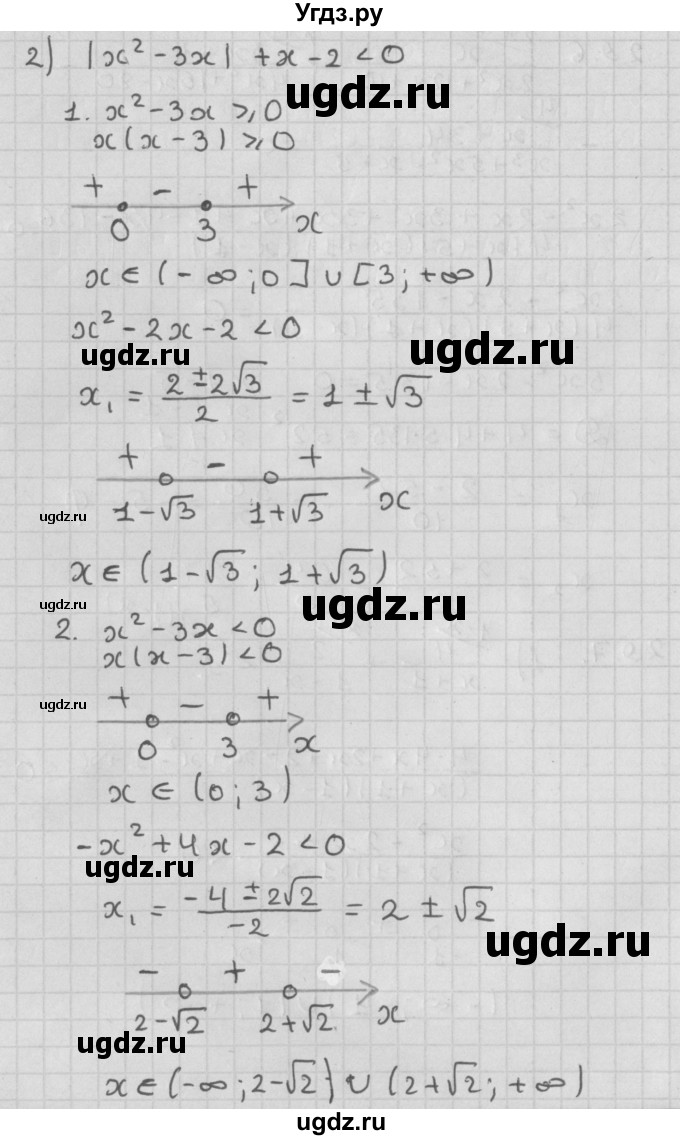 Угдз.ру
2) |x² - 3x| + x - 2 < 0
ugdz.ru
1. x² - 3x ⩾ 0
x(x - 3) ⩾ 0
+ - +
0 3 x
x ∈ (-∞; 0] ∪ [3; +∞)
x² - 2x - 2 < 0
ugdz.ru
ugdz.ru
x₁ = (2 ± 2√3)/2 = 1 ± √3
+ - +
ugdz.ru
1-√3 1+√3 x
x ∈ (1-√3; 1+√3)
ugdz.ru
ugdz.ru
2. x² - 3x < 0
x(x - 3) < 0
ugdz.ru
+ - +
0 3 x
x ∈ (0; 3)
-x² + 4x - 2 < 0
ugdz.ru
x₁ = (-4 ± 2√2)/-2 = 2 ± √2
ugdz.ru
- + -
2-√2 2+√2 x
ugdz.ru
x ∈ (-∞; 2-√2) ∪ (2+√2; +∞)
ugdz.ru